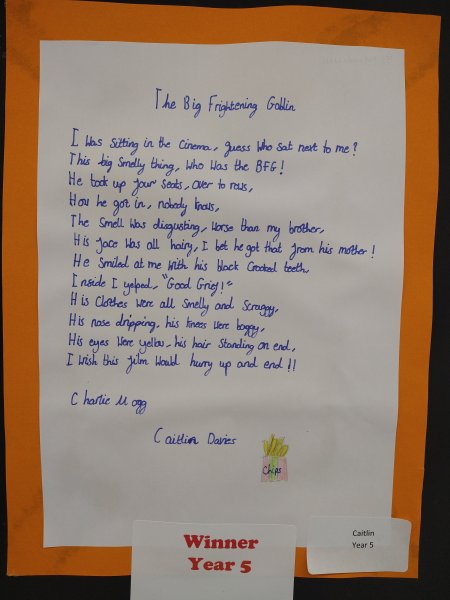 The Big Frightening Goblin
I Was Sitting in the Cinema, guess Who Sat next to me?
This big Smelly thing, Who Was the BFG!
He took up four Seats, over to rows,
How he got in, nobody knows,
The Smell Was disgusting, Worse than my brother,
His face Was all hairy, I bet he got that from his mother!
He Smiled at me With his black Crooked teeth,
Inside I yelped, "Good Grief!"
His Clothes Were all Smelly and Scraggy,
His nose dripping, his knees Were baggy,
His eyes Were yellow, his hair Standing on end,
I Wish this film Would hurry up and end!!
Charlie Mogg
Caitlin Davies
Chips
Winner
Year 5
Caitlin
Year 5